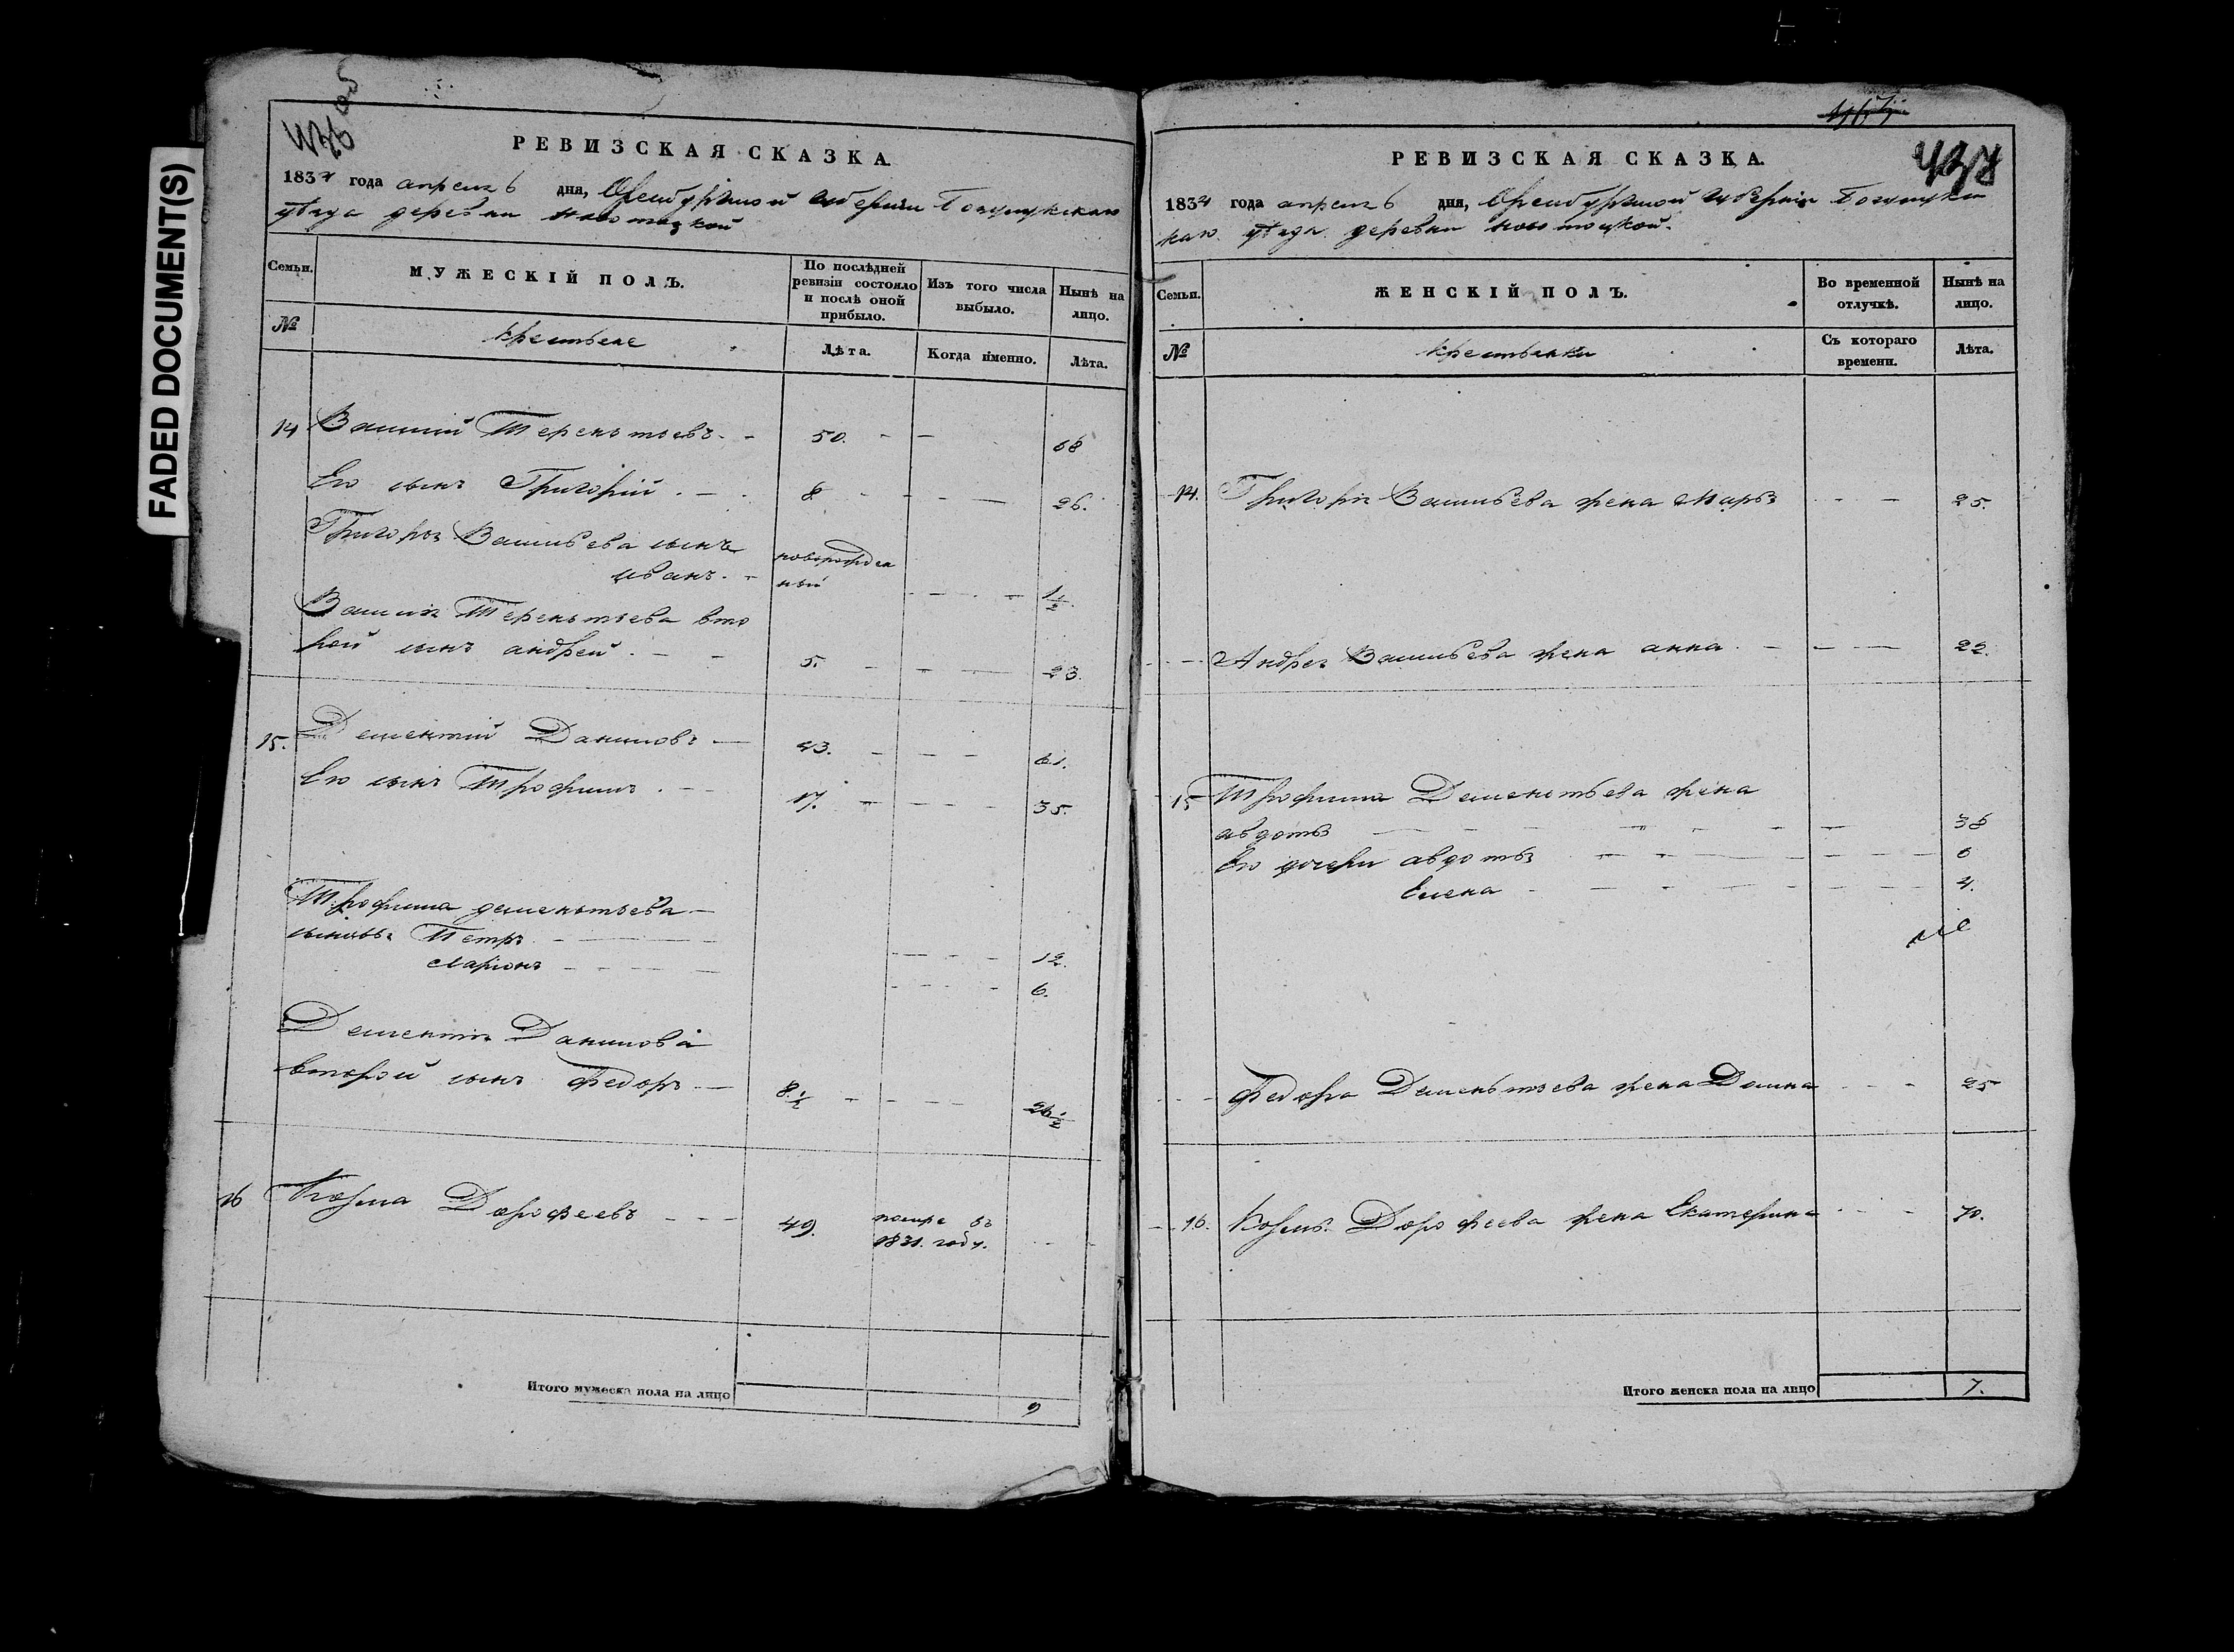 FADED DOCUMENT(S)
436 об
РЕВИЗСКАЯ СКАЗКА.
1834 года апреля 6 дня, Оренбургской губернии Богульмскаго
уѣзда деревни
Семьи.
МУЖЕСКІЙ ПОЛЪ.
По послѣдней ревизіи состояло и послѣ оной прибыло.
Изъ того числа выбыло.
Нынѣ на лицо.
№
крестьяне
Лѣта.
Когда именно.
Лѣта.
14 Василий Терентьевъ. 50. 68
Его сынъ Григорій. 8. 26.
Григорья Васильева сынъ новорожден
иванъ. ный 1 1/2.
Василья Терентьева вто
рой сынъ андрей. 5. 23.
15. Дементий Даниловъ 43. 61.
Его сынъ Трофимъ. 17. 35.
Трофима дементьева
сыновья Петръ 12.
Ларионъ 6.
Дементья Данилова
второй сынъ Федоръ 8. 1/2 26 1/2
16 Козма Дорофеевъ 49. помре въ
1831. году.
Итого мужеска пола на лицо 9
437
РЕВИЗСКАЯ СКАЗКА.
1834 года апреля 6 дня, Оренбургской губерніи
каго уѣзда деревни
Семьи.
ЖЕНСКІЙ ПОЛЪ.
Во временной отлучкѣ.
Нынѣ на лицо.
№
крестьянки
Съ котораго времени.
Лѣта.
14. Григорья Васильева жена Марья 25.
Андрея Васильева жена анна. 22.
15 Трофима Дементьева жена
авдотья 38
Его дочери авдотья 6
Елена 4.
Федора Дементьева жена Домна 25
16. Козмы Дорофеева жена Екатерина 70.
Итого женска пола на лицо 7.